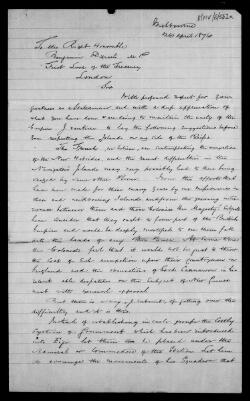 Melbourne
April 1874
To the Right Honorable
Benjamin Disraeli M.P.
First Lord of the Treasury
London
Sir
With profound respect for your
as a Statesman and with a deep appreciation of
what you have done in to maintain the unity of the
Empire I venture to lay the following suggestions before
you respecting the Islands in of the Pacific.
The French, we believe, are contemplating the annexation
of the New Hebrides, and the recent difficulties in the
Navigators Islands may very possibly lead to their being
seized by some other Power. From the efforts that
have been made for these many years by our Missionaries in
these and neighbouring Islands and from the
between them and these Colonies Her Majesty's subjects
here consider that they ought to form part of the British
Empire and would be deeply mortified to see them fall
into the hands of any other Power. At the same time
the Colonists feel that it would not be just to throw
the cost of such occupation upon their countrymen in
England and the connection of Lord Carnarvon in his
late despatches on the subject of New Guinea
meet with general approval.
But there is a way, I submit, of getting over the
difficulty, and it is this.
Instead of establishing in each group the costly
system of Government which has been introduced
into Fiji let them be placed under the
Admiral or Commodore of the Station. Let him
so arrange the movements of his Squadron that